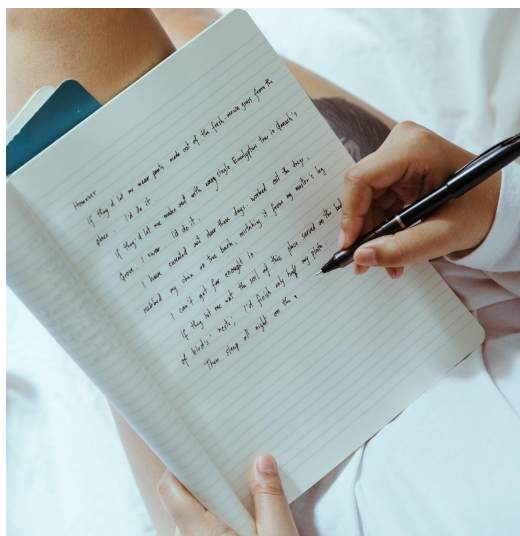 However
If they'd let me wear pants made out of the fresh mown grass from this
place, I'd do it.
If they'd let me make out with every single Eucalyptus tree in Stomach's
Grove, I swear I'd do it.
I have sweated out dew these days, worked out the dregs,
rubbed my chin on tree bark, mistaking it from my master's leg
I can't get far enough in.
If they let me eat the soil of this place served on the bed
of birds' nests, I'd finish only half my plate.
Then sleep all night on the